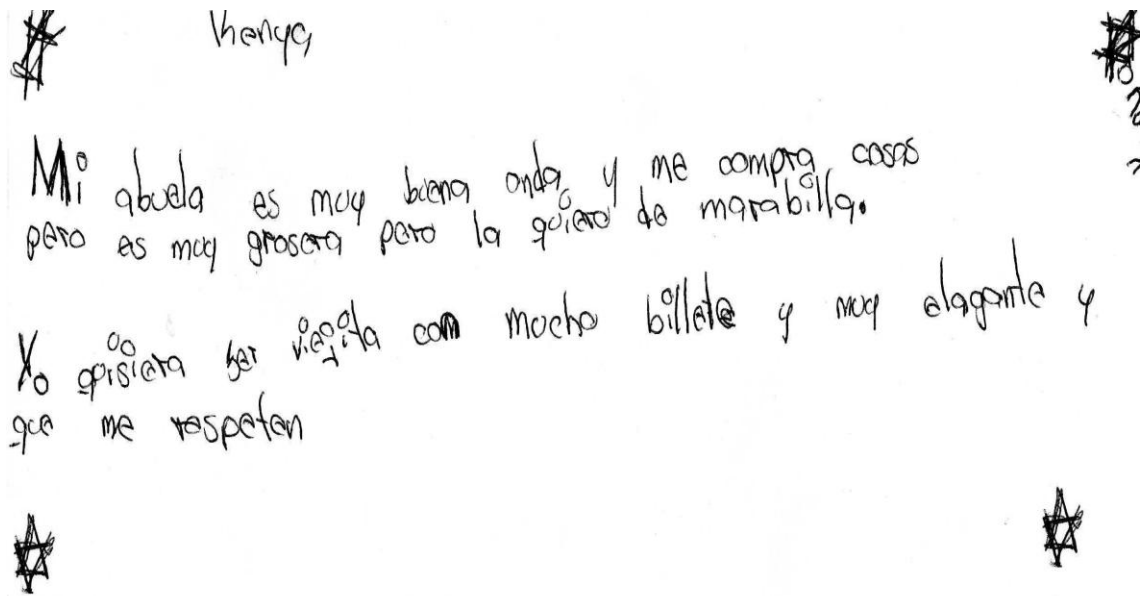 Khenya
Mi abuela es muy buena onda y me compra cosas
pero es muy grosera pero la quiero de marabilla.
Yo quisiera ser viegita com mucho billete y muy elagante y
que me respeten